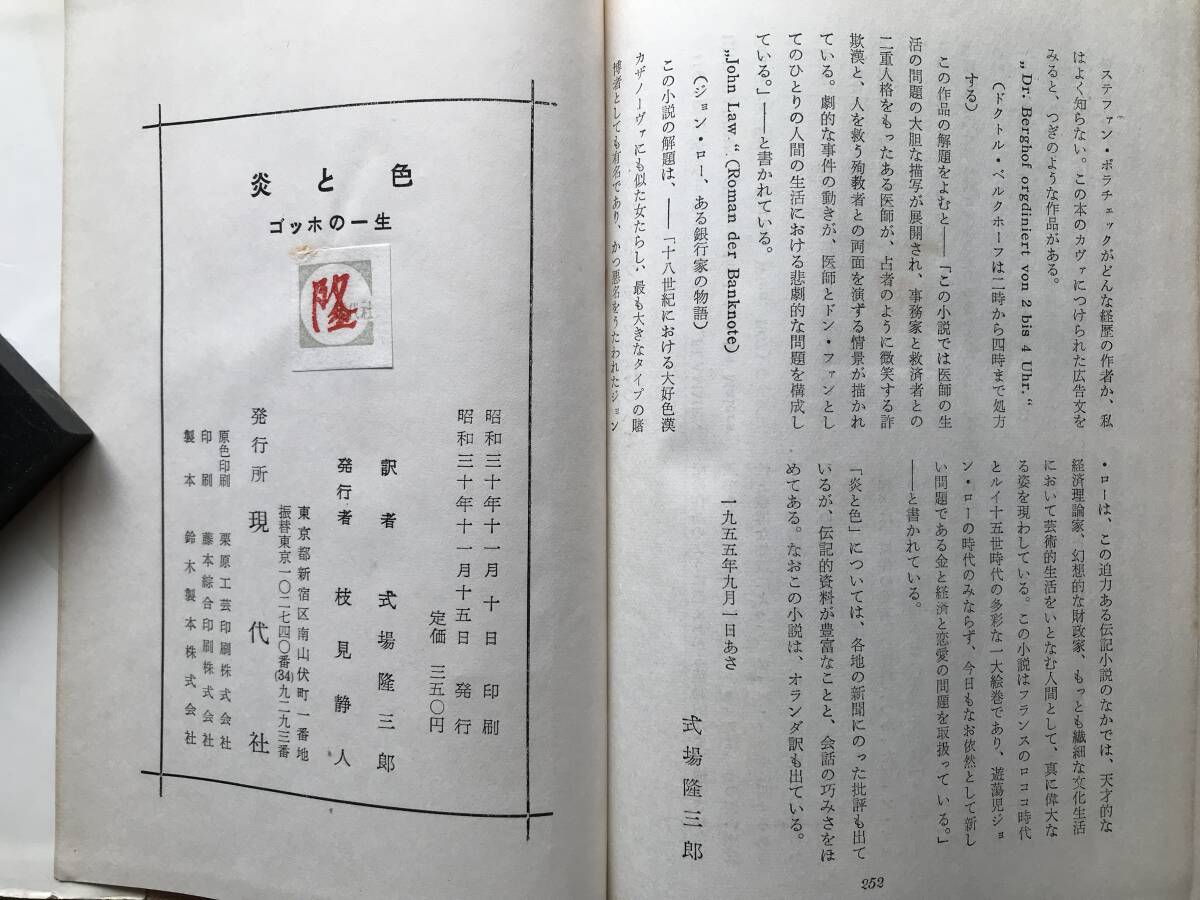 ステファン・ポラチェックがどんな経歴の作者か、私
はよく知らない。この本のカヴァにつけられた広告文を
みると、つぎのような作品がある。
„Dr. Berghof orgdiniert von 2 bis 4 Uhr.“
(ドクトル・ベルクホーフは二時から四時まで処方
する)
この作品の解題をよむと——「この小説では医師の生
活の問題の大胆な描写が展開され、事務家と救済者との
二重人格をもったある医師が、占者のように微笑する詐
欺漢と、人を救う殉教者との両面を演ずる情景が描かれ
ている。劇的な事件の動きが、医師とドン・ファンとし
てのひとりの人間の生活における悲劇的な問題を構成し
ている。」——と書かれている。
„John Law.“ (Roman der Banknote)
(ジョン・ロー、ある銀行家の物語)
この小説の解題は、——「十八世紀における大好色漢
カザノーヴァにも似た女たらし、最も大きなタイプの賭
博者としても有名であり、かつ悪名をうたわれたジョン
・ローは、この迫力ある伝記小説のなかでは、天才的な
経済理論家、幻想的な財政家、もっとも繊細な文化生活
において芸術的生活をいとなむ人間として、真に偉大な
る姿を現わしている。この小説はフランスのロココ時代
とルイ十五世時代の多彩な一大絵巻であり、遊蕩児ジョ
ン・ローの時代のみならず、今日もなお依然として新し
い問題である金と経済と恋愛の問題を取扱っている。」
——と書かれている。
「炎と色」については、各地の新聞にのった批評も出て
いるが、伝記的資料が豊富なことと、会話の巧みさをほ
めてある。なおこの小説は、オランダ訳も出ている。
一九五五年九月一日あさ
式場隆三郎
252
炎と色
ゴッホの一生
隆
昭和三十年十一月十日 印刷
昭和三十年十一月十五日 発行
定価 三五〇円
訳者 式場隆三郎
発行者 枝見静人
東京都新宿区南山伏町一番地
振替東京一〇二七四〇番(34)九二九三番
発行所 現代社
原色印刷 栗原工芸印刷株式会社
印刷 藤本綜合印刷株式会社
製本 鈴木製本株式会社